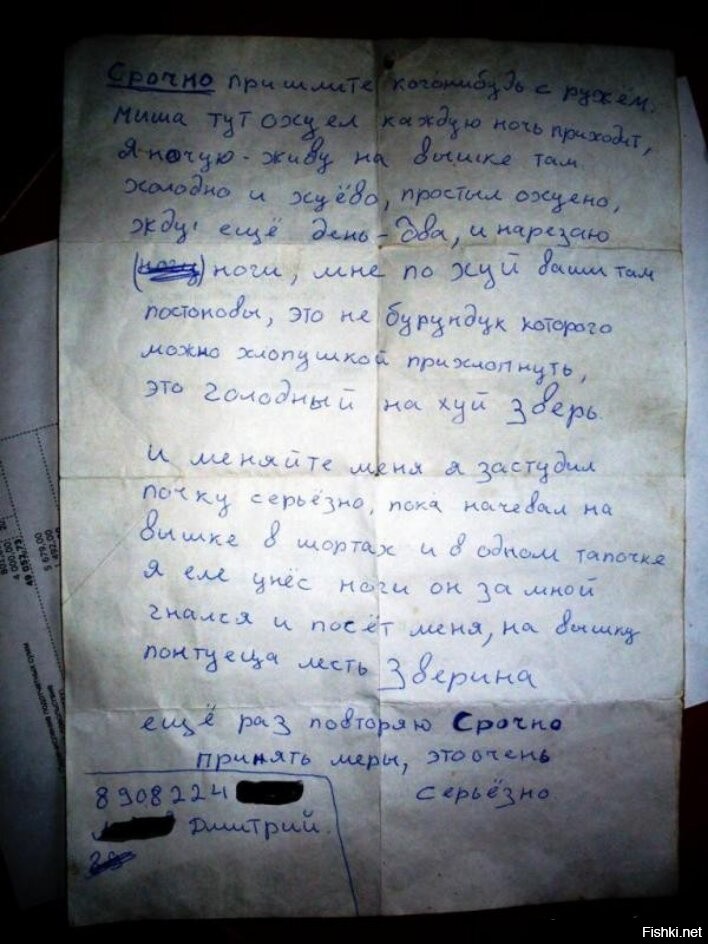 Срочно пришлите когонибудь с ружём.
Миша тут охуел каждую ночь приходит,
Я ночую-живу на вышке там
холодно и хуёво, простыл охуено,
жду ещё день-два, и нарезаю
ноги, мне по хуй ваши там
постоновы, это не бурундук которого
можно хлопушкой прихлопнуть,
это голодный на хуй Зверь.
и меняйте меня я застудил
почку серьёзно, пока начевал на
вышке в шортах и в одном тапочке
я еле унёс ноги он за мной
гнался и посёт меня, на вышку
понтуеца лесть Зверина
ещё раз повторяю Срочно
принять меры, это очень
серьёзно
8908224
Дмитрий.
49 092,73
4 000,00
5 679,00
Fishki.net